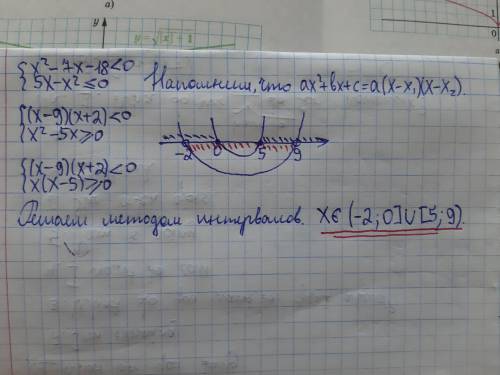 a)
y
y=√|x|-1
1
0
{x²-7x-18<0
{5x-x²≤0
Напомним, что ax²+bx+c=a(x-x₁)(x-x₂).
{(x-9)(x+2)<0
{x²-5x≥0
-2 0 5 9
{(x-9)(x+2)<0
{x(x-5)≥0
Решаем методом интервалов. X∈(-2;0]∪[5;9).